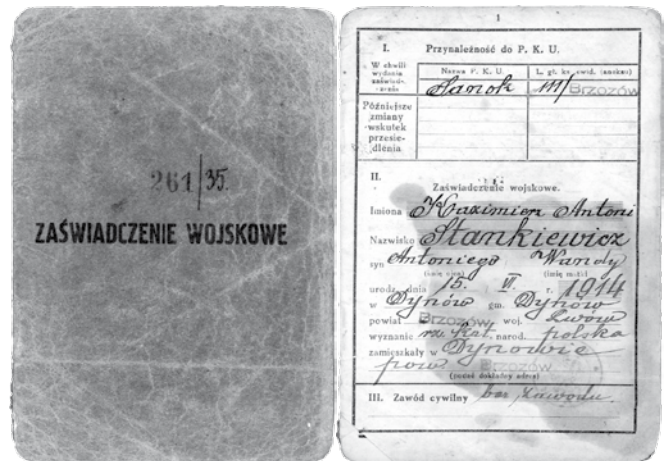 261/35.
ZAŚWIADCZENIE WOJSKOWE
1
I. Przynależność do P. K. U.
W chwili wydania zaświadczenia
Nazwa P. K. U.
Sanok
Brzozów
Późniejsze
zmiany
wskutek
przesie-
dlenia
II.
Zaświadczenie wojskowe.
Imiona Kazimierz Antoni
Nazwisko Stankiewicz
syn Antoniego Wandy
(imię ojca) (imię matki)
urodz. dnia 15. VI. r. 1914
w Dynów gm. Dynów
powiat Brzozów woj. Lwów
wyznanie rz. Kat. narod. polska
zamieszkały w Dynowie
pow. Brzozów
(podać dokładny adres)
III. Zawód cywilny bez zawodu.